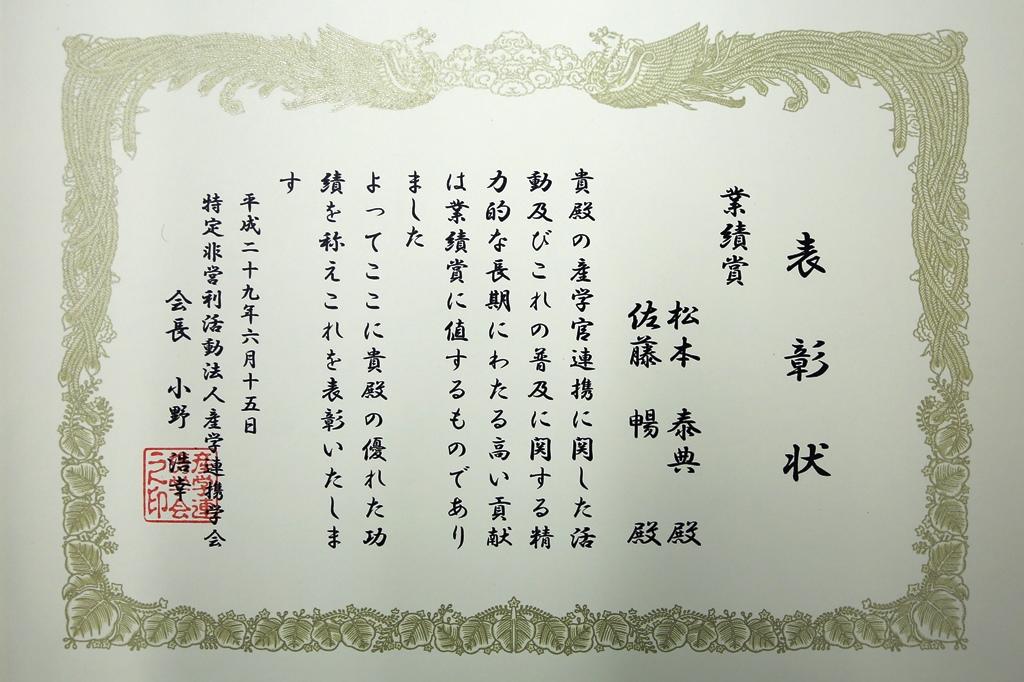 表彰状
業績賞
松本 泰典 殿
佐藤 暢 殿
貴殿の産学官連携に関した活
動及びこれの普及に関する精
力的な長期にわたる高い貢献
は業績賞に値するものであり
ました
よってここに貴殿の優れた功
績を称えこれを表彰いたしま
す
平成二十九年六月十五日
特定非営利活動法人産学連携学会
会長 小野 浩幸